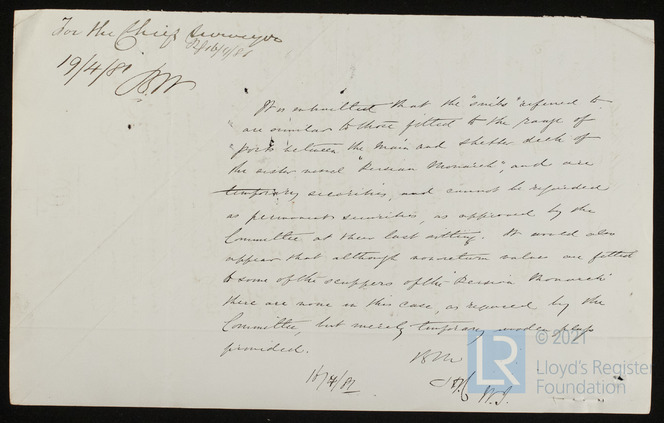 For the Chief Surveyor
16/4/81
19/4/81 BM
It is submitted that the "suits" referred to
" are similar to those fitted to the range of
" ports between the main and shelter deck of
the sister vessel "Persian Monarch", and are
temporary securities, and cannot be regarded
as permanent securities, as approved by the
Committee at their last sitting. It would also
appear that although nonreturn valves are fitted
to some of the scuppers of the "Persian Monarch"
there are none in this case, as required by the
Committee, but merely temporary wooden plugs
provided.
BM
16/4/81
W.J.
LR
© 2021
Lloyd's Register
Foundation